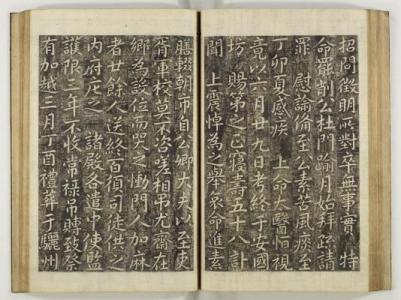 招問徵明所對卒無事實 特
命罷削公杜門踰月始拜疏請
罪 慰諭備至公素苦風痰至
丁卯夏感疾 上命太醫臨視
竟以六月廿九日考終于安國
坊 賜第之正寢壽五十八訃
聞 上震悼為之舉哀命進素
膳輟朝市自公卿大夫以至吏
胥軍校莫不咨嗟相弔尤齋在
鄉為設位而哭之慟門人加麻
者廿餘人送終百須司徒供之
內府庀之 諸殿各遣中使監
護限三年不收常祿吊賻致祭
有加越三月丁酉禮葬于驪州